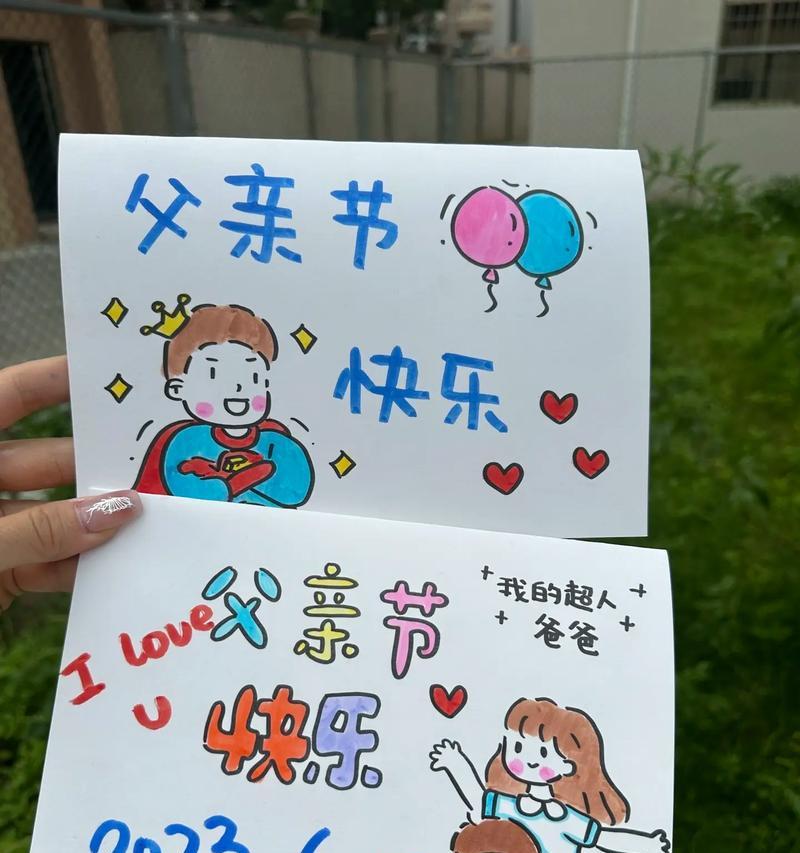 父亲节
快乐
父亲节
我的超人
爸爸
I love
U
快乐
2023